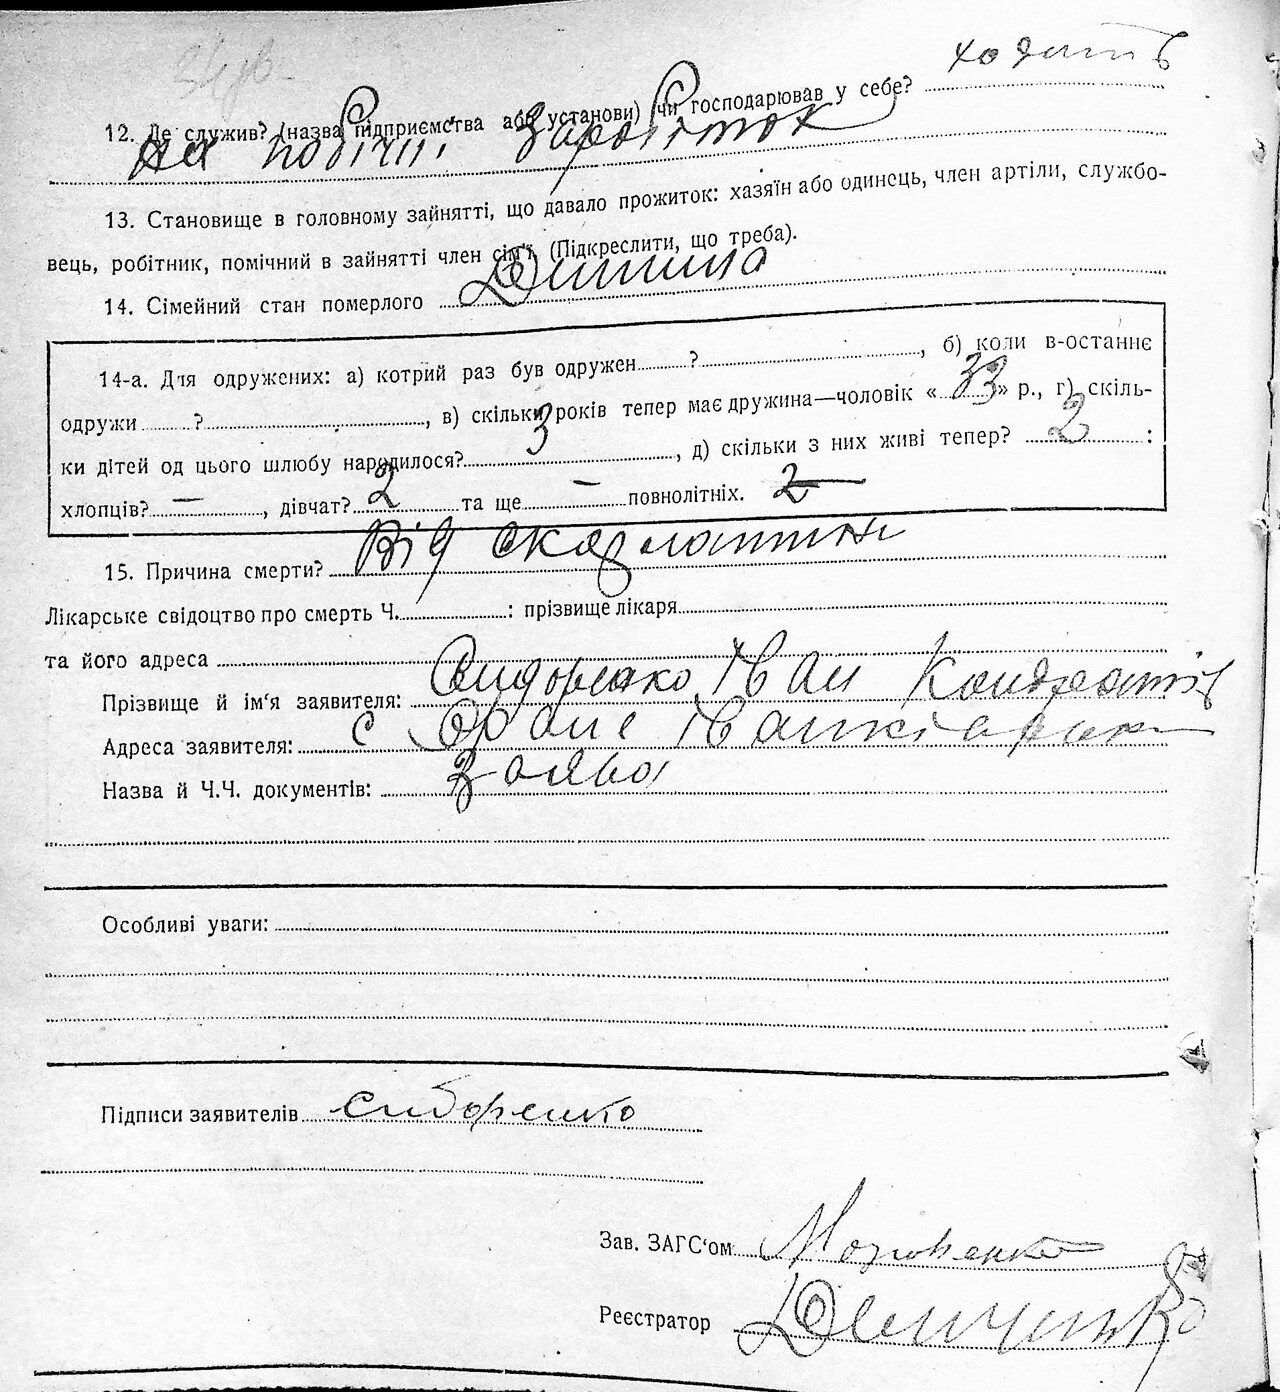 ходить
12. Де служив? (назва підприємства або установи) чи господарював у себе?
на побічні заробіток
13. Становище в головному зайнятті, що давало прожиток: хазяїн або одинець, член артіли, службо-
вець, робітник, помічний в зайнятті член сім'ї. (Підкреслити, що треба).
14. Сімейний стан померлого Дитина
14-а. Для одружених: а) котрий раз був одружен ? , б) коли в-останнє
одружи ? , в) скільки років тепер має дружина—чоловік « 33 » р., г) скіль-
ки дітей од цього шлюбу народилося? 3 , д) скільки з них живі тепер? 2 :
хлопців? — , дівчат? 2 та ще — повнолітніх. 2
15. Причина смерти? Від скарлатини
Лікарське свідоцтво про смерть Ч. : прізвище лікаря
та його адреса
Прізвище й ім'я заявителя: Сидоренко Іван Кондратів
Адреса заявителя: с
Назва й Ч.Ч. документів: Заява
Особливі уваги:
Підписи заявителів Сидоренко
Зав. ЗАГС'ом
Реєстратор Демченко